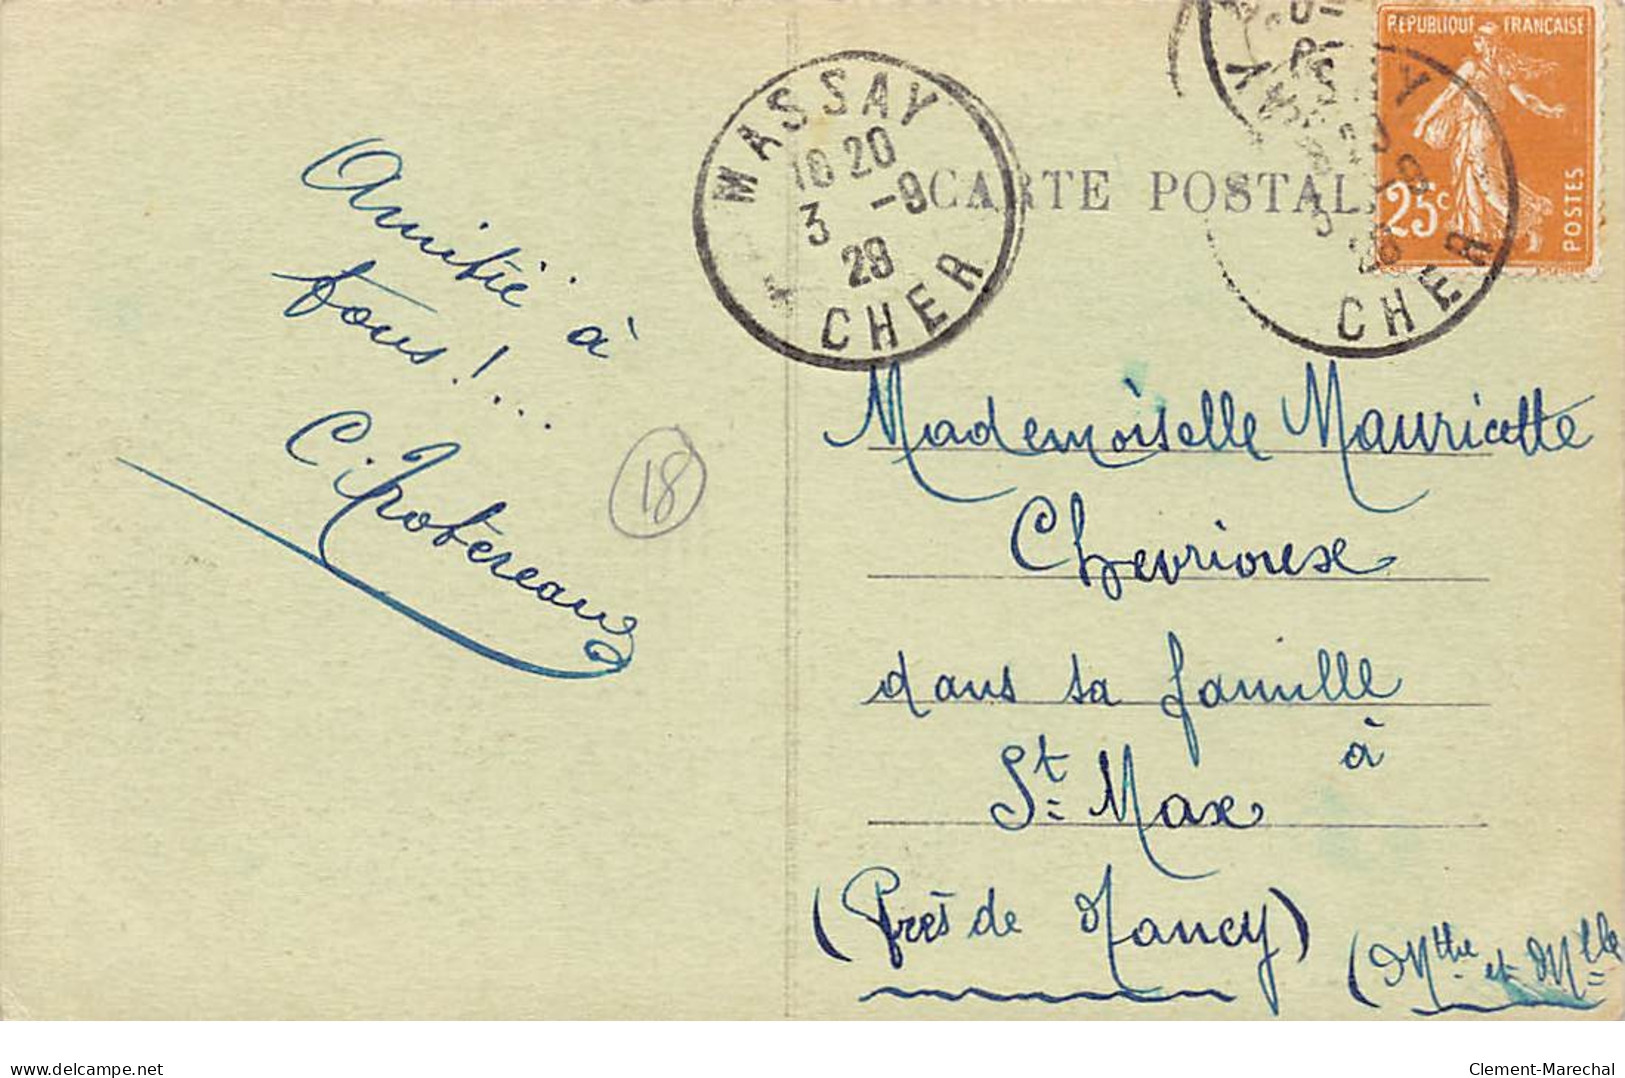 Amitié à
tous!...
C. Thotereau
18
MASSAY
18 20
3 -9
28
CHER
CARTE POSTALE
REPUBLIQUE FRANCAISE
25c
POSTES
CHER
Mademoiselle Mauricette
Chevrioux
dans sa famille
à
St Max
(Près de Nancy)
(Mthe et Mlle
www.delcampe.net
Clement-Marechal